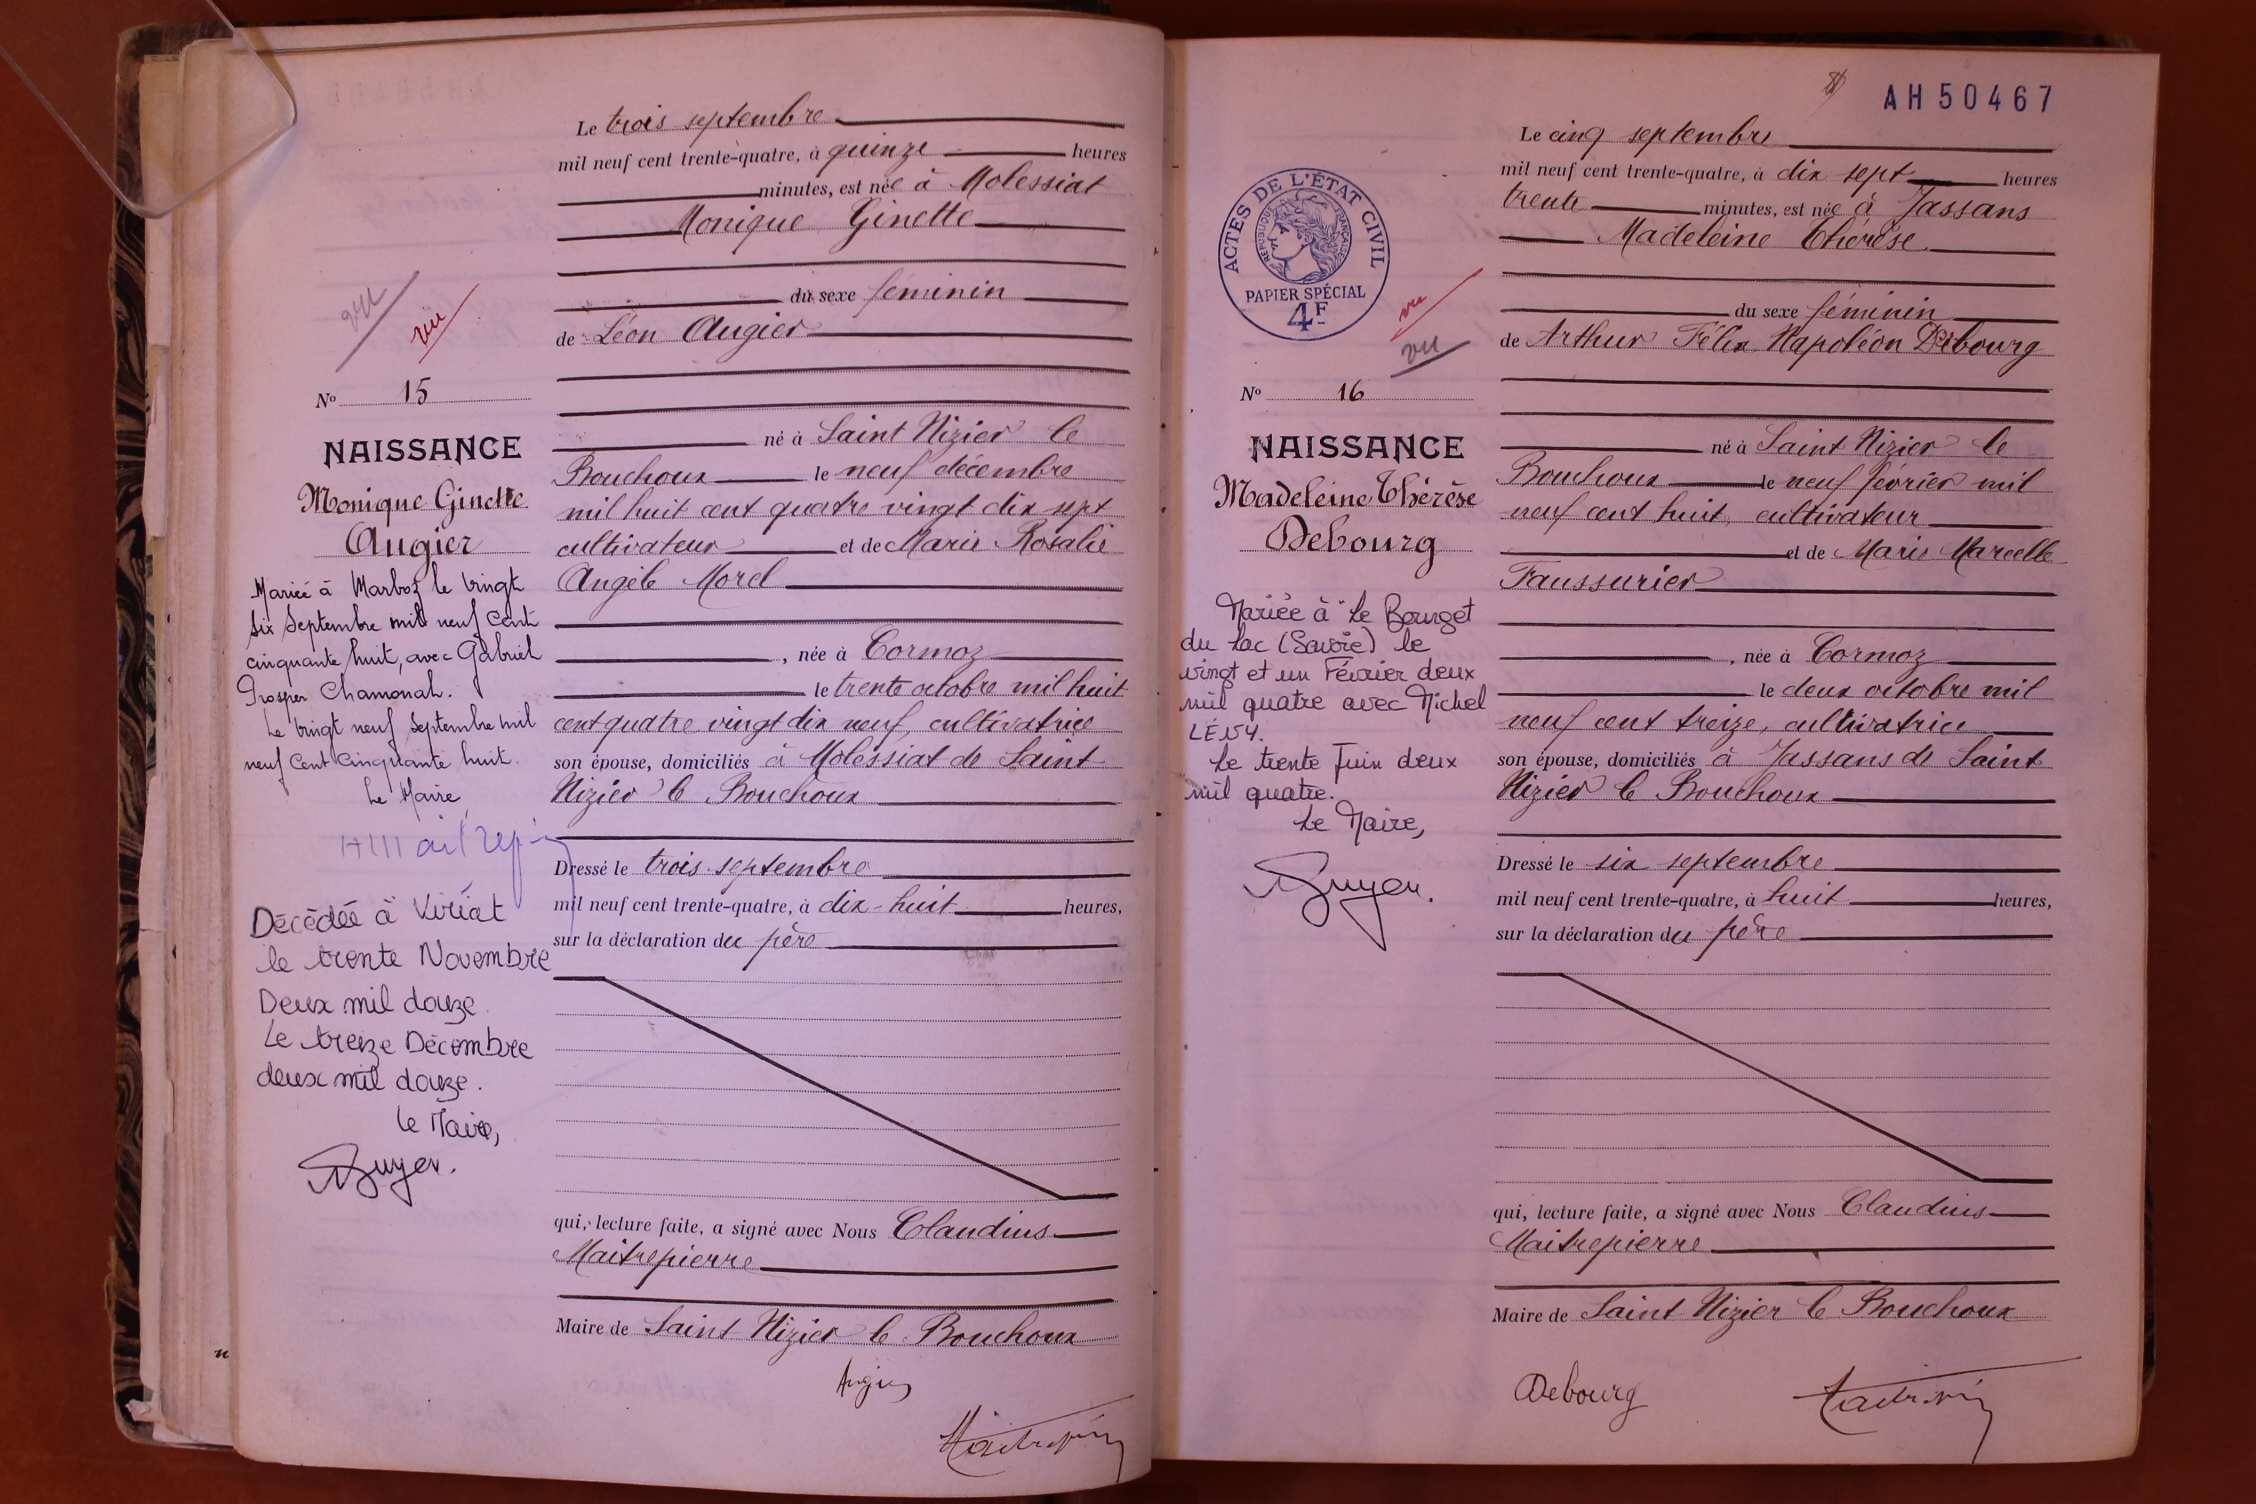 Le trois septembre
mil neuf cent trente-quatre, à quinze heures
minutes, est née à Molessiat
Monique Ginette
du sexe féminin
de Léon Augier
vu
vu
N° 15
né à Saint Nizier le
NAISSANCE
Bouchoux le neuf décembre
Monique Ginette
mil huit cent quatre vingt dix sept
Augier
cultivateur et de Marie Rosalie
Angèle Morel
Mariée à Marboz le vingt
six Septembre mil neuf cent
cinquante huit, avec Gabriel
Prosper Chamonal.
Le vingt neuf Septembre mil
neuf cent cinquante huit.
Le Maire,
, née à Cormoz
le trente octobre mil huit
cent quatre vingt dix neuf, cultivatrice
son épouse, domiciliés à Molessiat de Saint
Nizier le Bouchoux
Dressé le trois septembre
mil neuf cent trente-quatre, à dix-huit heures,
sur la déclaration du père
Décédée à Viriat
le trente Novembre
Deux mil douze.
Le treize Décembre
deux mil douze.
Le Maire,
qui, lecture faite, a signé avec Nous Claudius
Maitrepierre
Maire de Saint Nizier le Bouchoux
Augier
AH 50467
Le cinq septembre
mil neuf cent trente-quatre, à dix sept heures
trente minutes, est née à Jassans
Madeleine Thérèse
ACTES DE L'ÉTAT CIVIL
RÉPUBLIQUE FRANÇAISE
PAPIER SPÉCIAL
4F
vu
vu
du sexe féminin
de Arthur Félix Napoléon Debourg
N° 16
né à Saint Nizier le
NAISSANCE
Bouchoux le neuf février mil
Madeleine Thérèse
neuf cent huit, cultivateur
Debourg
et de Marie Marcelle
Faussurier
Mariée à "Le Bourget
du Lac (Savoie) le
vingt et un Février deux
mil quatre avec Michel
LÉVY.
Le trente Juin deux
mil quatre.
Le Maire,
, née à Cormoz
le deux octobre mil
neuf cent treize, cultivatrice
son épouse, domiciliés à Jassans de Saint
Nizier le Bouchoux
Dressé le six septembre
mil neuf cent trente-quatre, à huit heures,
sur la déclaration du père
qui, lecture faite, a signé avec Nous Claudius
Maitrepierre
Maire de Saint Nizier le Bouchoux
Debourg